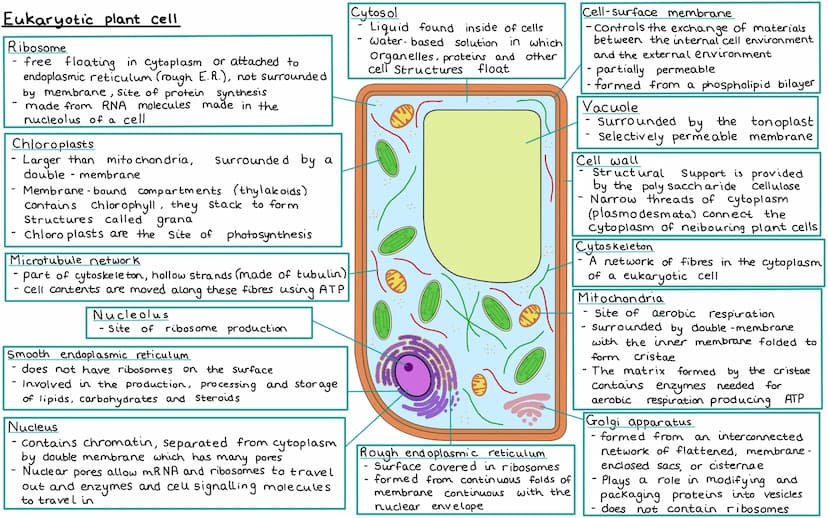 Eukaryotic plant cell
Ribosome
- free floating in cytoplasm or attached to
endoplasmic reticulum (rough E.R.), not surrounded
by membrane, site of protein synthesis
- made from RNA molecules made in the
nucleolus of a cell
Chloroplasts
- Larger than mitochondria, surrounded by a
double-membrane
- Membrane-bound compartments (thylakoids)
contains chlorophyll, they stack to form
structures called grana
- Chloroplasts are the site of photosynthesis
Microtubule network
- part of cytoskeleton, hollow strands (made of tubulin)
- Cell contents are moved along these fibres using ATP
Nucleolus
- Site of ribosome production
Smooth endoplasmic reticulum
- does not have ribosomes on the surface
- Involved in the production, processing and storage
of lipids, carbohydrates and steroids
Nucleus
- Contains chromatin, separated from cytoplasm
by double membrane which has many pores
- Nuclear pores allow mRNA and ribosomes to travel
out and enzymes and cell signalling molecules
to travel in
Cytosol
- Liquid found inside of cells
- water-based solution in which
organelles, proteins and other
cell structures float
Rough endoplasmic reticulum
- Surface covered in ribosomes
- formed from continuous folds of
membrane continuous with the
nuclear envelope
Cell-surface membrane
- Controls the exchange of materials
between the internal cell environment
and the external environment
- partially permeable
- formed from a phospholipid bilayer
Vacuole
- Surrounded by the tonoplast
- Selectively permeable membrane
Cell wall
- Structural support is provided
by the polysaccharide cellulose
- Narrow threads of cytoplasm
(plasmodesmata) connect the
cytoplasm of neibouring plant cells
Cytoskeleton
- A network of fibres in the cytoplasm
of a eukaryotic cell
Mitochondria
- Site of aerobic respiration
- Surrounded by double-membrane
with the inner membrane folded to
form cristae
- The matrix formed by the cristae
contains enzymes needed for
aerobic respiration producing ATP
Golgi apparatus
- formed from an interconnected
network of flattened, membrane-
enclosed sacs, or cisternae
- Plays a role in modifying and
packaging proteins into vesicles
- does not contain ribosomes